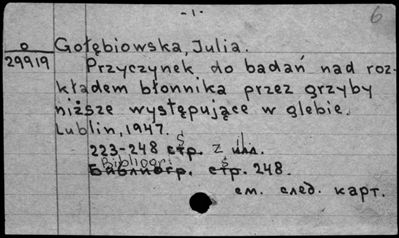 -1.
6
o
29919
Gołębiowska, Julia.
Przyczynek do badań nad roz-
kładem błonnika przez grzyby
niższe występujące w glebie.
Lublin, 1947.
223-248 s z il
Bibliogr s 248.
см. след. карт.